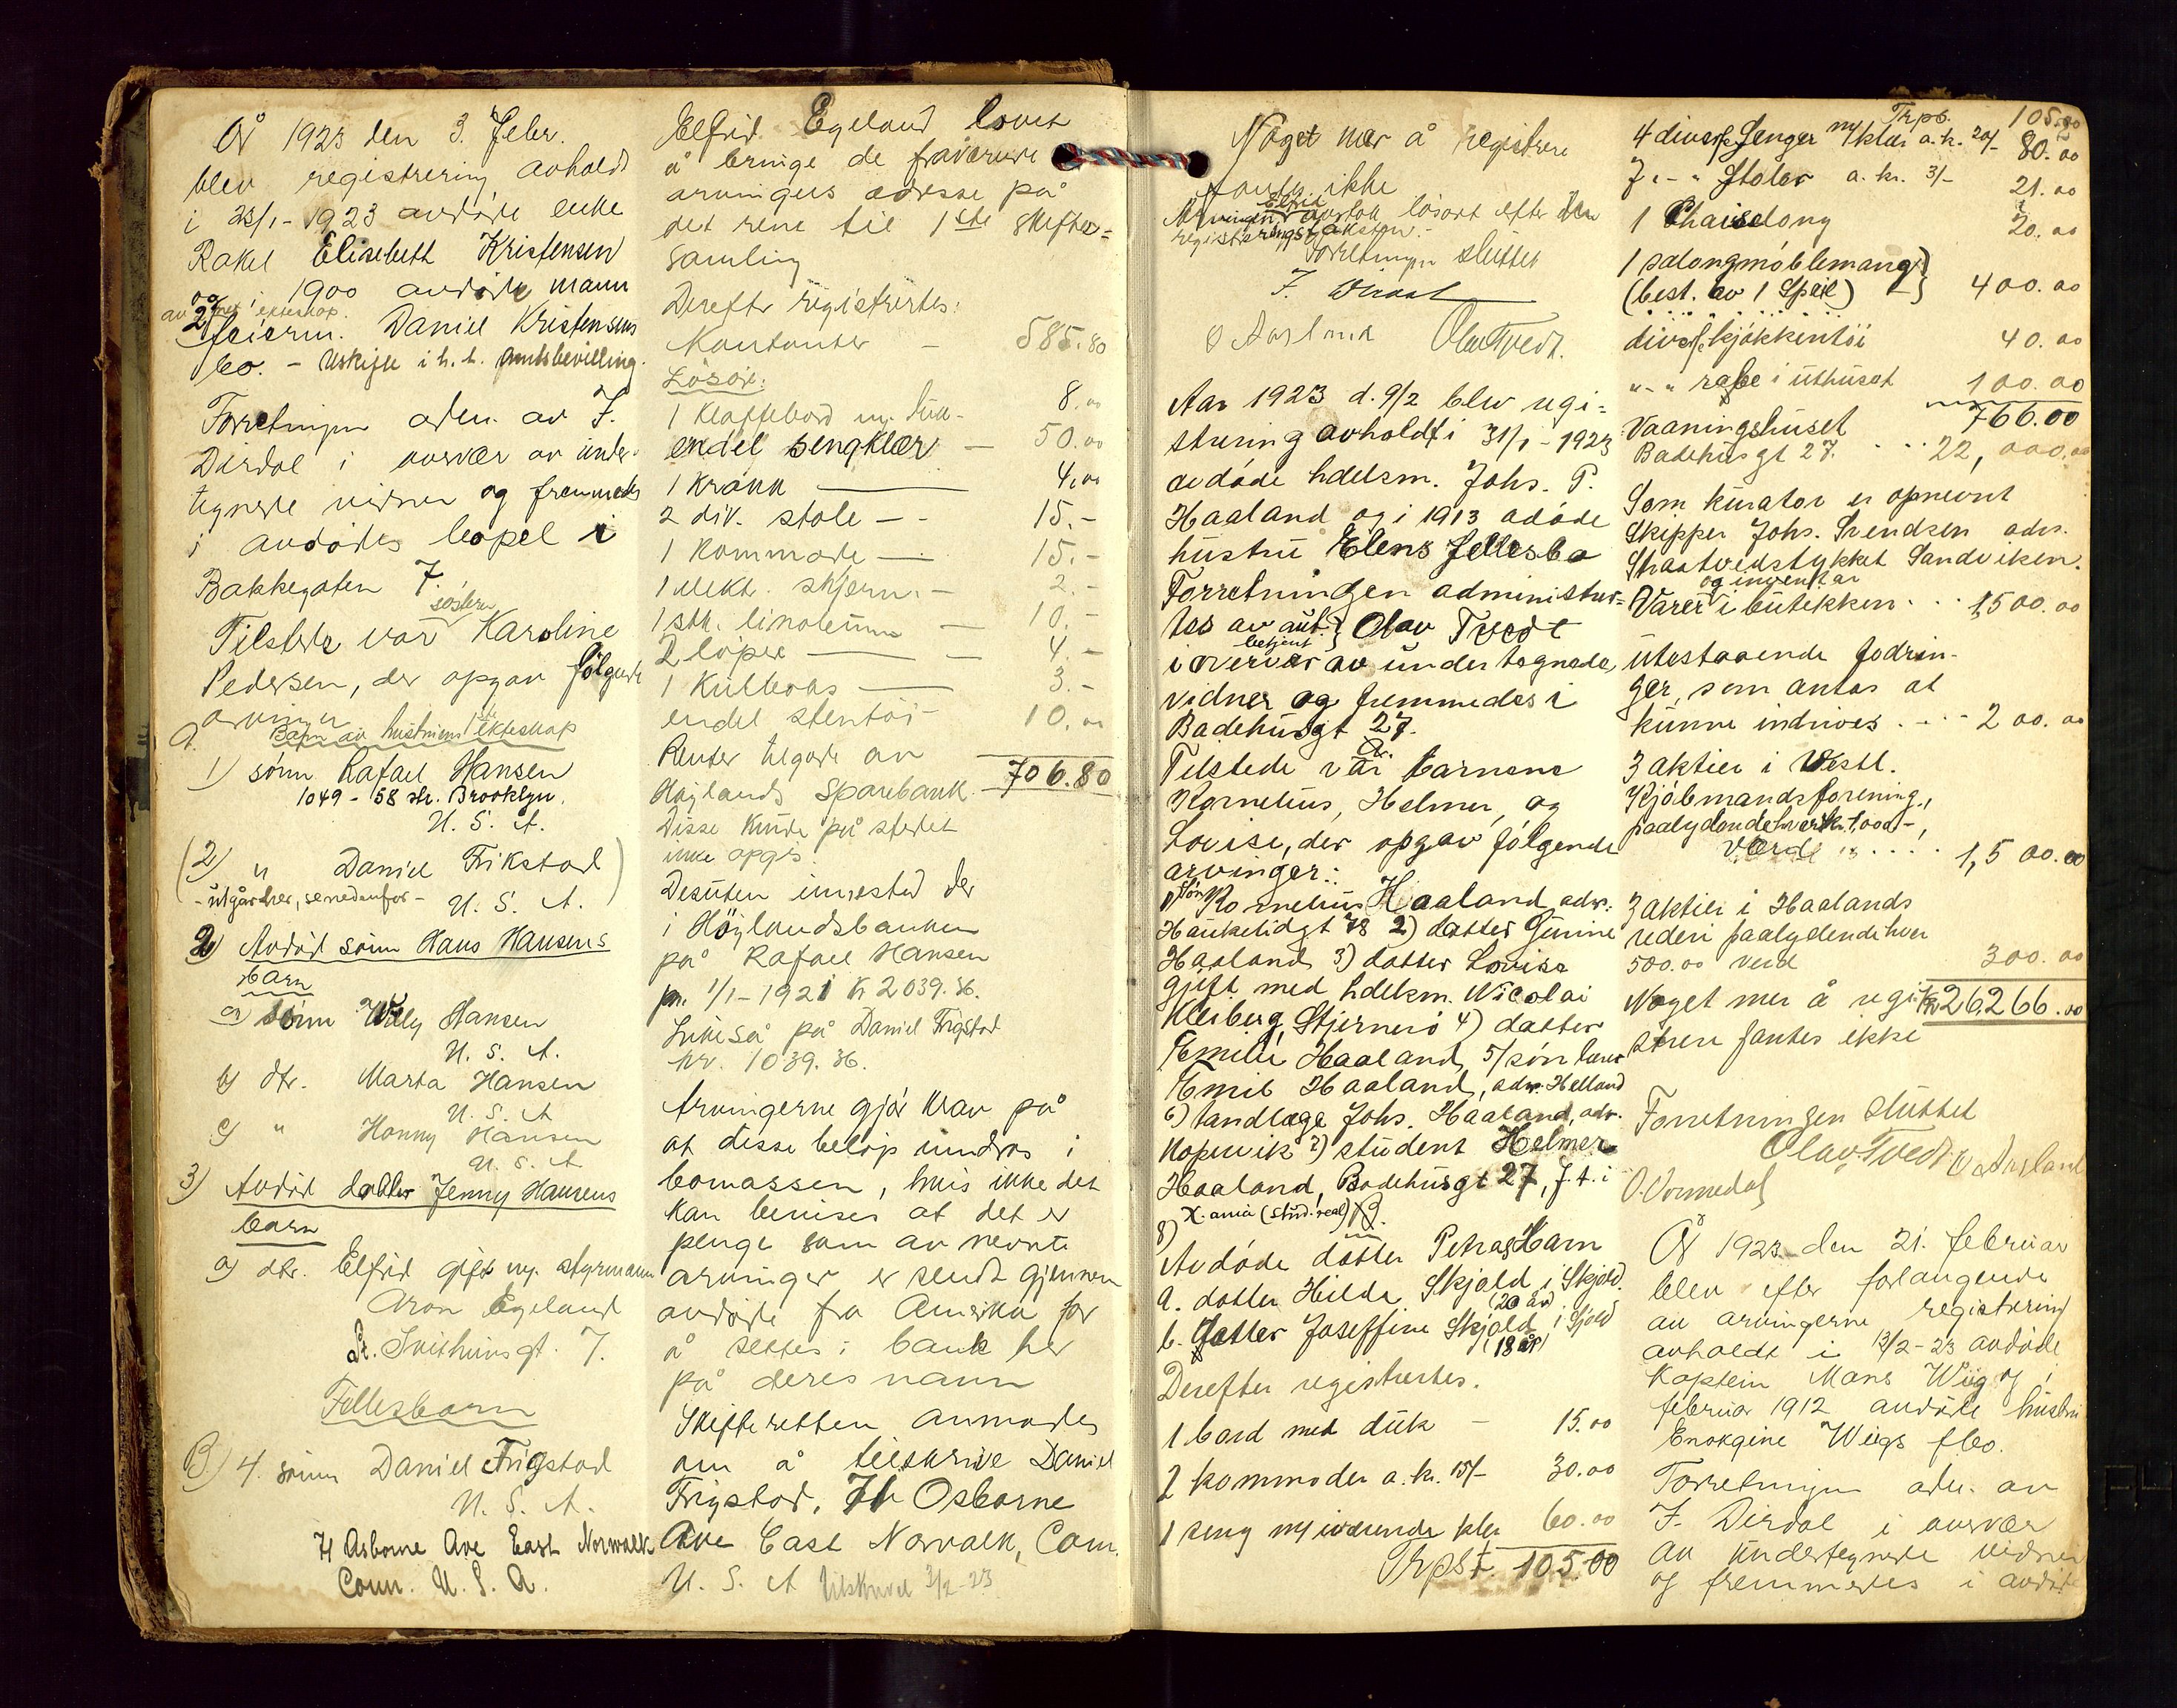 År 1923 den 3. Febr.
blev registrering avholdt
i 23/1-1923 avdøde enke
Rakel Elisabeth Kristensen
og i 1900 avdøde mann
av 2net ekteskap.
feierm. Daniel Kristensens
bo. - Uskifte i h. t. Amtsbevilling.
Forretningen adm. av F.
Dirdal i overvær av under-
tegnede vidner og fremmedes
i avdødes bopel i
Bakkegaten 7.
Tilstede var søsteren Karoline
Pedersen, der opgav følgende
arvinger
A. Barn av hustruens 1ste ekteskap
1) sønn Rafael Hansen
1049 - 58 str. Brooklyn.
U. S. A.
(2) " Daniel Frikstad)
- utgår her, se nedenfor - U. S. A.
2) Avdød sønn Hans Hansens
barn
a) sønn Willy Hansen
U. S. A.
b) dtr. Marta Hansen
U. S. A
c) " Hanny Hansen
U. S. A
3) Avdød datter Jenny Hansens
barn
a) dtr. Elfrid gift m. styrmann
Aron Egeland
St. Svithunsgt. 7.
Fellesbarn
B) 4. sønn Daniel Frigstad
U. S. A.
71 Asborne Ave East Norwalk
Conn. U. S. A.
Elfrid Egeland lovet
å bringe de fraværende
arvingers adresse på
det rene til 1ste skifte=
samling
Derefter registrertes:
Kontanter - 585.80
Løsøre:
1 Klaffebord m. duk - 8.00
endel sengklær - 50.00
1 Krakk - 4.00
2 div. stole - - 15.-
1 Kommode - 15.-
1 elekt. skjerm. - 2.-
1 stk. linoleum - 10.-
2 løpere - 4.-
1 Kulboks - 3.-
endel stentøi - 10.00
Renter tilgode av
Høylands Sparebank. 706.80
Disse kunde på stedet
ikke opgis.
Desuten innestod der
i Höylandsbanken
på Rafael Hansen
pr. 1/1-1921 Kr 2039.36.
Likeså på Daniel Frigstad
kr. 1039.36.
Arvingerne gjör krav på
at disse beløp inndras i
bomassen, hvis ikke det
kan bevises at det er
penge som av nevnte
arvinger er sendt gjennem
avdøde fra Amerika for
å settes i bank her
på deres navn
Skifteretten anmodes
om å tilskrive Daniel
Frigstad, 71 Osborne
Ave East Norvalk, Conn.
U. S. A Utskrevet 3/2-23
Noget mer å registrere
fantes ikke
Arvingen Elfrid overtok løsøret efter den
registreringstaksten. -
Forretningen sluttet
F. Dirdal
O Aarland Olav Tvedt.
Aar 1923 d. 9/2 blev regi=
strering avholdt i 31/1-1923
avdøde hdelsm. Johs. P.
Haaland og i 1913 adøde
hustru Elens fellesbo
Forretningen administrer=
tes av aut. betjent Olav Tvedt
i overvær av undertegnede
vidner og fremmedes i
Badehusgt 27.
A.
Tilstede var barnene
Kornelius, Helmer, og
Lovise, der opgav følgende
arvinger:
1) Søn Kornelius Haaland adr.:
Haukelidgt 78 2) datter Gunine
Haaland 3) datter Lovise
gift med hdelsm. Nicolai
Kleiberg, Stjernerö 4) datter
Emilie Haaland, 5) søn lærer
Emil Haaland, adr. Helland
6) tandlæge Johs. Haaland, adr.
Kopervik 7) student Helmer
Haaland, Badehusgt 27, f. t. i
X.ania (stud. real) B.
8)
Avdøde datter Petras barn
a. datter Hilda Skjold i Skjold.
(20 år)
b. datter Joseffine Skjold i Skjold
(18 år)
Derefter registrertes.
1 bord med duk - 15.00
2 kommoder a. kr. 15/- 30.00
1 seng m/ iværende klær 60.00
Trpst 105.00
Trpb. 105.00
4 diverse senger m/ klær a. k. 20/- 80.00
7 " - " Stoler a. kr. 3/- 21.00
1 Chaiselong 20.00
1 salongmøblemang
(best. av 1 Speil) } 400.00
diverse kjøkkentöi 40.00
" - " rase i uthuset 100.00
766.00
Vaaningshuset
Badehusgt 27. . . . 22,000.00
Som kurator er opnevnt
Skipper Johs. Svendsen adr.
Straatvedstykket Sandviken.
Varer og inventar i butikken . . . 1,500.00
Utestaaende fodrin-
ger, som antas at
kunne indrives . . . - 200.00
3 aktier i Vestl.
Kjøbmandsforening,
paalydende hver kr. 1,000 -,
værd . . . . 1,500.00
3 aktier i Haalands
rederi paalydende hver
500.00 verd 300.00
Noget mer å regi- Kr. 26,266.00
strere fantes ikke
Forretningen sluttet
Olav Tvedt O Aarland
O. Ormedal
År 1923 den 21. februar
blev efter forlangende
av arvingerne registrering
avholdt i 13/2-23 avdøde
Kaptein Mons Wiig og i
februar 1912 avdöde hustru
Enokgine Wiigs fbo.
Forretningen adm. av
F. Dirdal i overvær
av undertegnede vidner
og fremmedes i avdøde